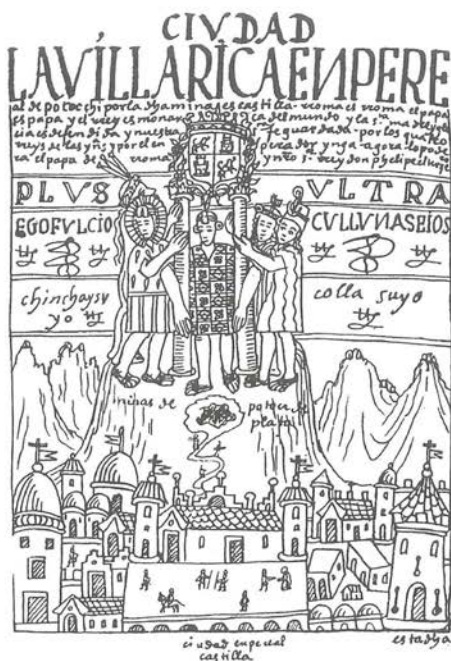 CIVDAD
LA VILLA RICA ENPERE
al de potocchi por la dha mina es castilla roma es roma el papa
es papa y el rrey es monarca del mundo y la s.ta ma de ygle
cia es defendida y nuestra fe guardada por los quatro
rreys de las yns y por el enperador ynga agora lo pode
ra el papa de roma y nro s. rrey don phelipe el
PLVS VLTRA
EGO FVLCIO CVLLVNAS EIOS
chinchaysu
yo
colla suyo
minas de potoci de
plata
ciudad enperial
castilla
estadha